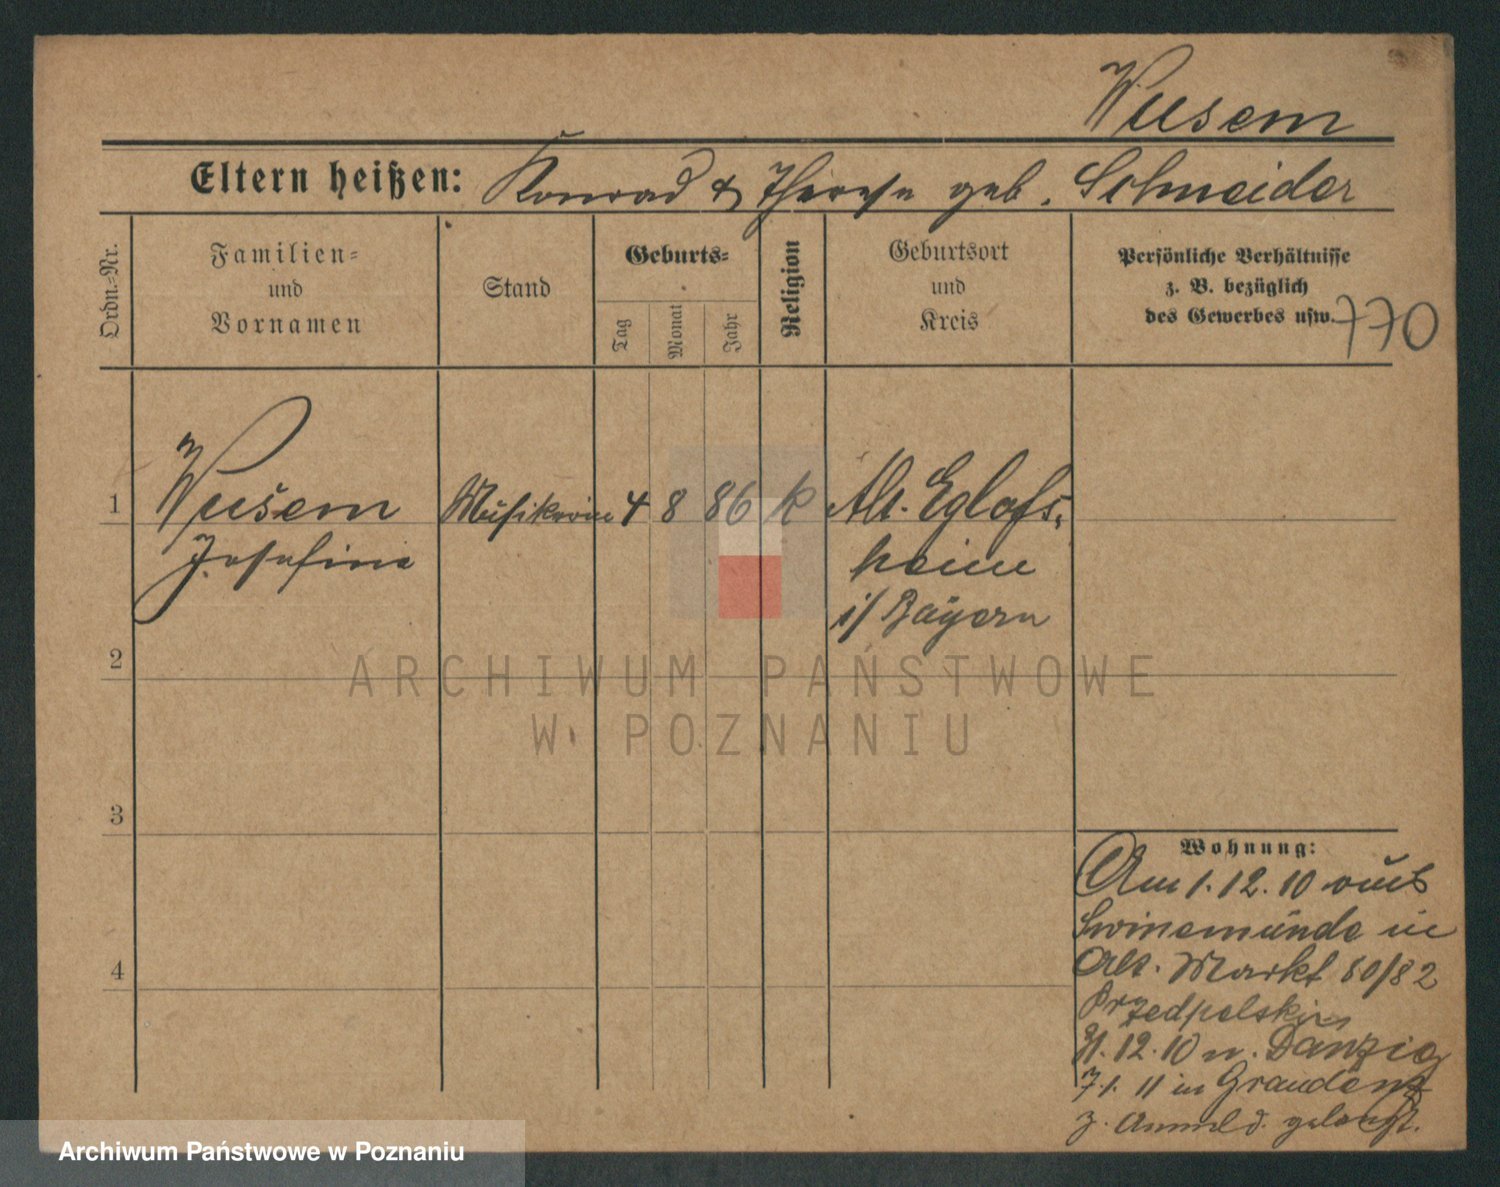 Wusem
Eltern heißen: Konrad & Therese geb. Schneider
Ordn.=Nr.
Familien=
und
Vornamen
Stand
Geburts=
Tag
Monat
Jahr
Religion
Geburtsort
und
Kreis
Persönliche Verhältnisse
z. B. bezüglich
des Gewerbes usw.
770
1
Wusem Musikerin 4 8 86 k Alt. Eglofs-
Josefine heim
i/ Bayern
2
ARCHIWUM PAŃSTWOWE
W POZNANIU
3
Wohnung:
Am 1.12.10 aus
Swinemünde in
Alt. Markt 80/82
Przedpelski
31.12.10 n. Danzig
7.1.11 in Graudenz
z. Anmeld. gelangt.
4
Archiwum Państwowe w Poznaniu